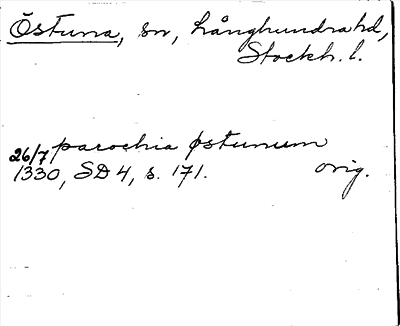 Östuna, sn, Långhundra hd,
Stockh. l.
26/7 parochia østunum
1330, SD 4, s. 171. orig.